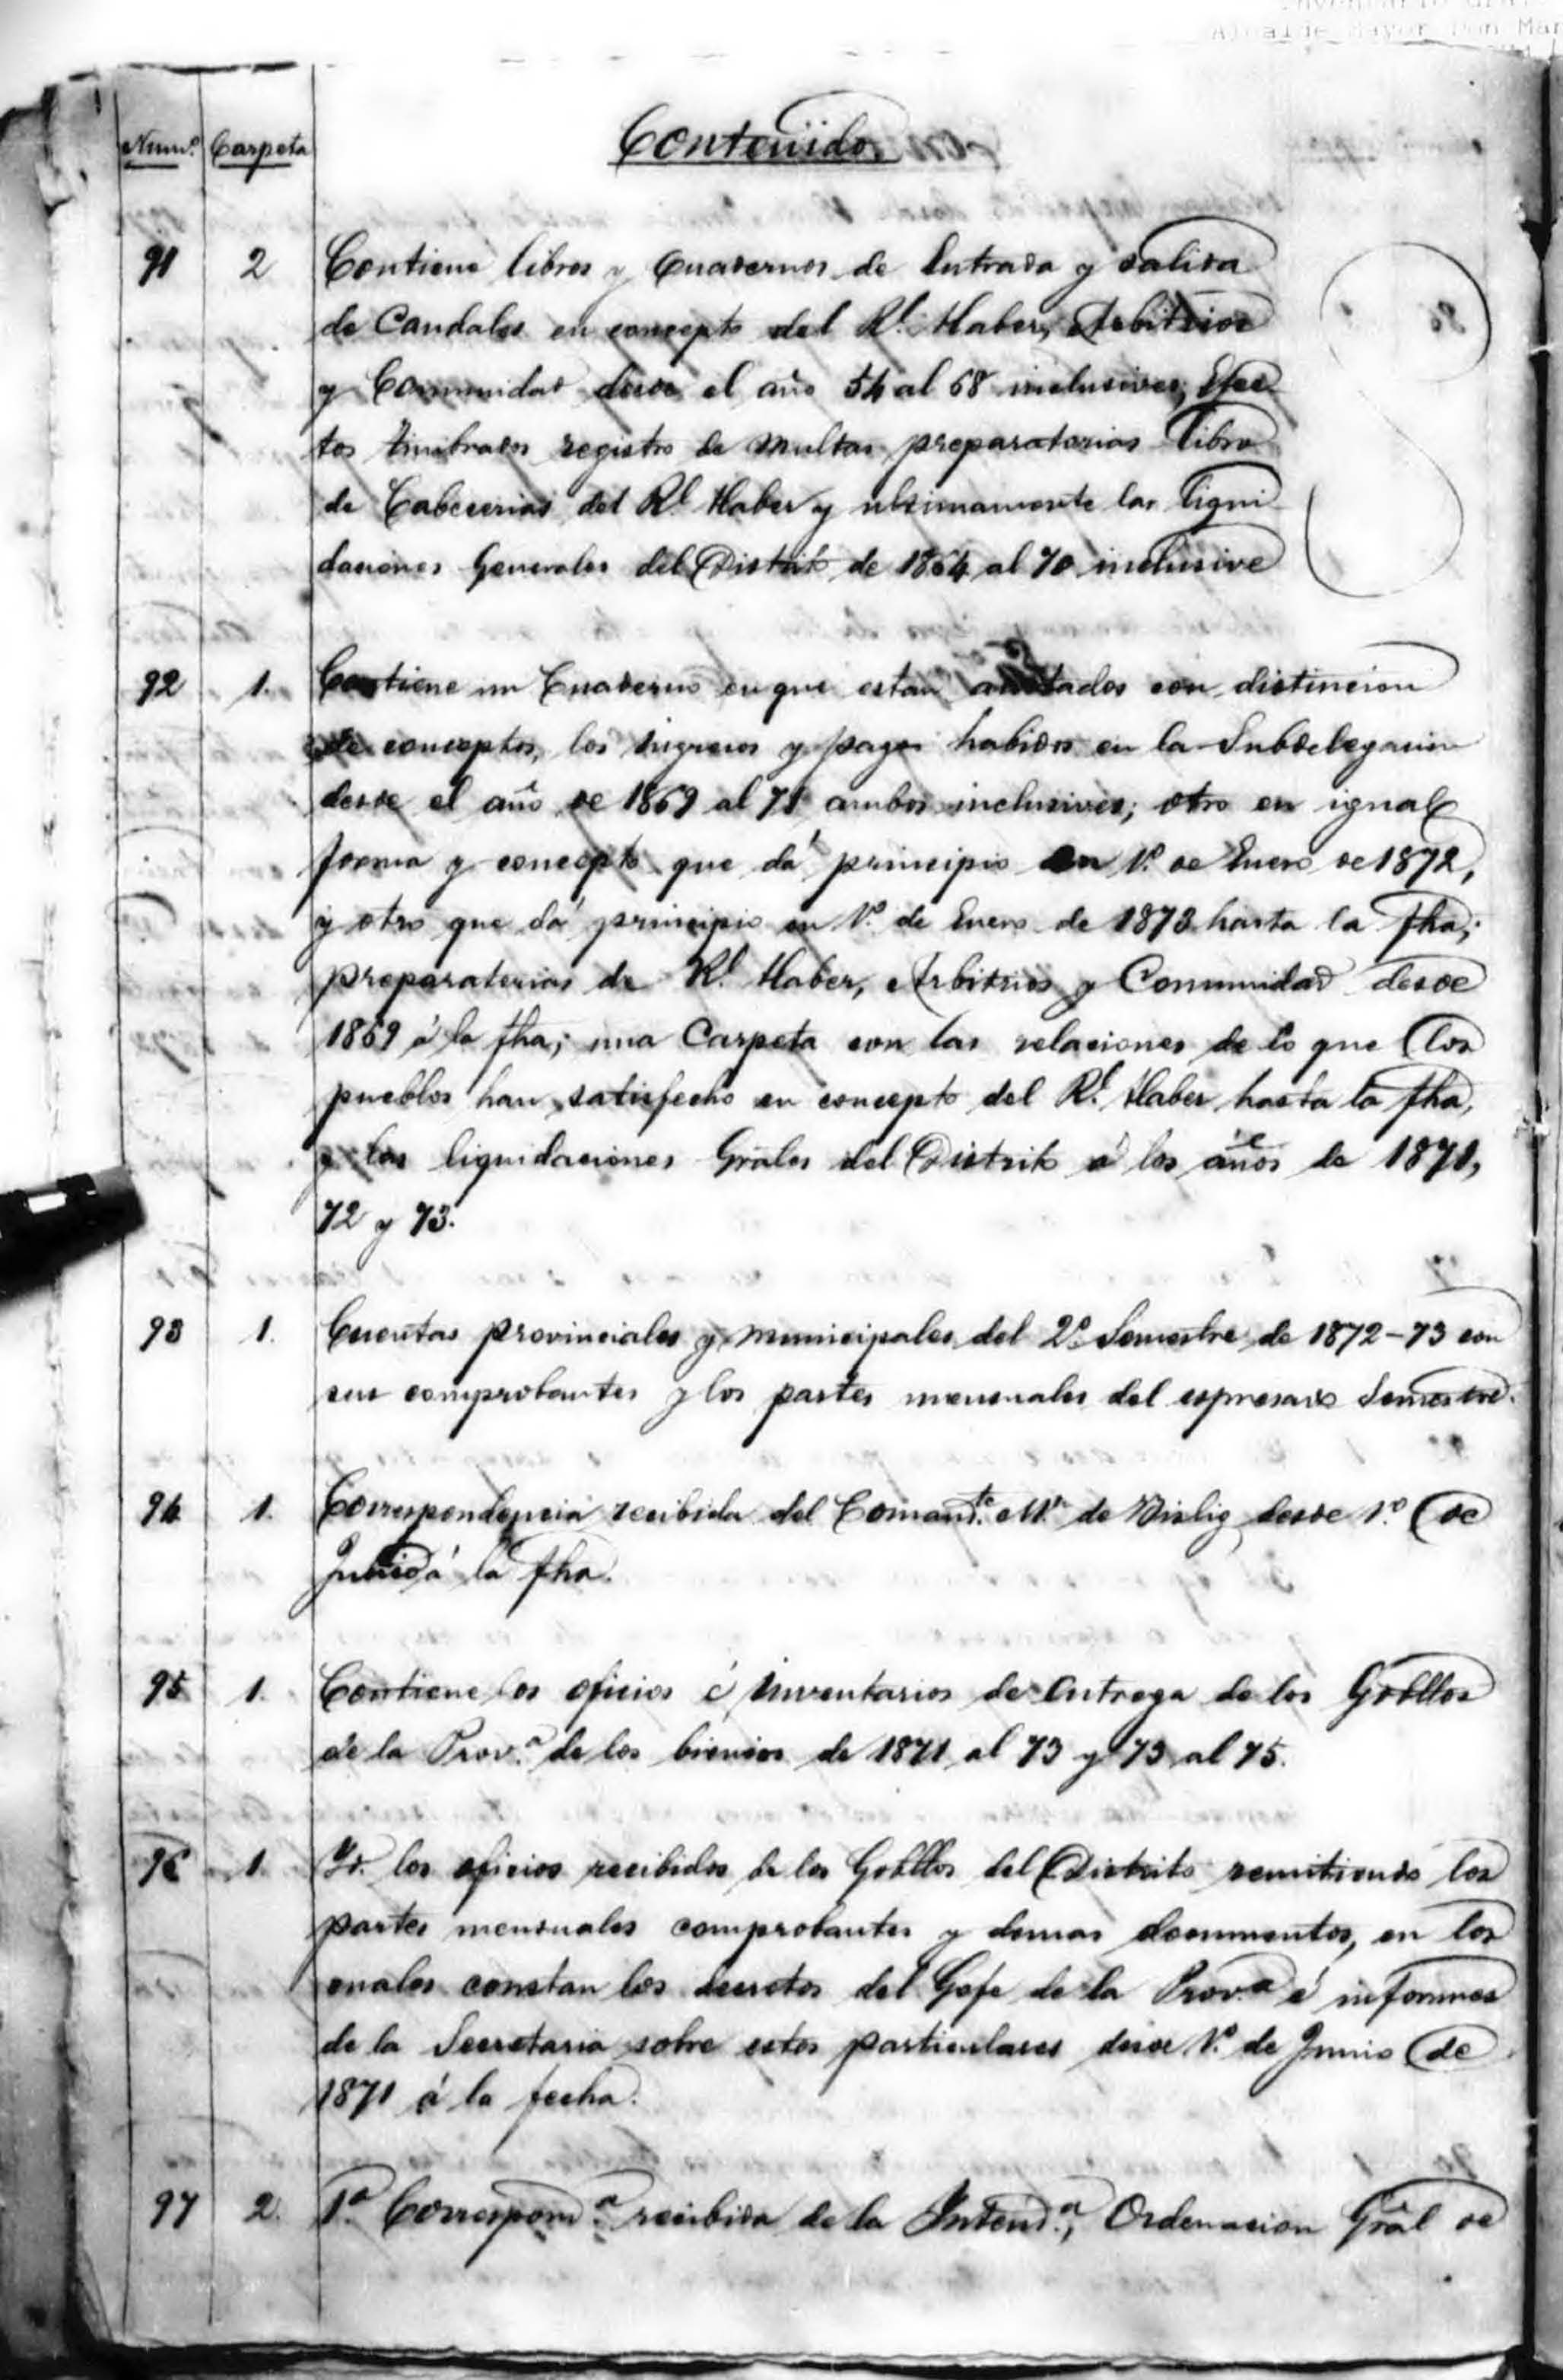 Num.º Carpeta Contenido.
91 2 Contiene libros y Cuadernos de Entrada y salida
de Caudales en concepto del Rl. Haber, Arbitrios
y Comunidad desde el año 54 al 68 inclusives, Efec
tos timbrados registro de multas, preparatorias libro
de Cabecerias del Rl. Haber y ultimamente las liqui
daciones Generales del Distrito de 1864 al 70 inclusive
92 1. Contiene un Cuaderno en que estan anotados con distincion
de conceptos, los ingresos y pagos habidos en la Subdelegacion
desde el año de 1869 al 71 ambos inclusives; otro en igual
forma y concepto que dá principio en 1.º de Enero de 1872,
y otro que dá principio en 1.º de Enero de 1873 hasta la fha;
preparatorias de Rl. Haber, Arbitrios y Comunidad desde
1869 á la fha; una Carpeta con las relaciones de lo que los
pueblos han satisfecho en concepto del Rl. Haber hasta la fha,
y las liquidaciones Grales del Distrito á los años de 1871,
72 y 73.
93 1. Cuentas provinciales y municipales del 2.º Semestre de 1872-73 con
sus comprobantes y los partes mensuales del espresado Semestre.
94 1. Correspondencia recibida del Comand.te M.r de Bislig desde 1.º de
Junio á la fha.
95 1. Contiene los oficios é inventarios de entrega de los Gobllos
de la Prov.a de los bienios de 1871 al 73 y 73 al 75.
96 1. Id. los oficios recibidos de los Gobllos del Distrito remitiendo los
partes mensuales comprobantes y demas documentos, en los
cuales constan los decretos del Gefe de la Prov.a é informes
de la Secretaria sobre estos particulares desde 1.º de Junio de
1871 á la fecha.
97 2. 1.a Correspond.a recibida de la Intend.a, Ordenacion Gral de